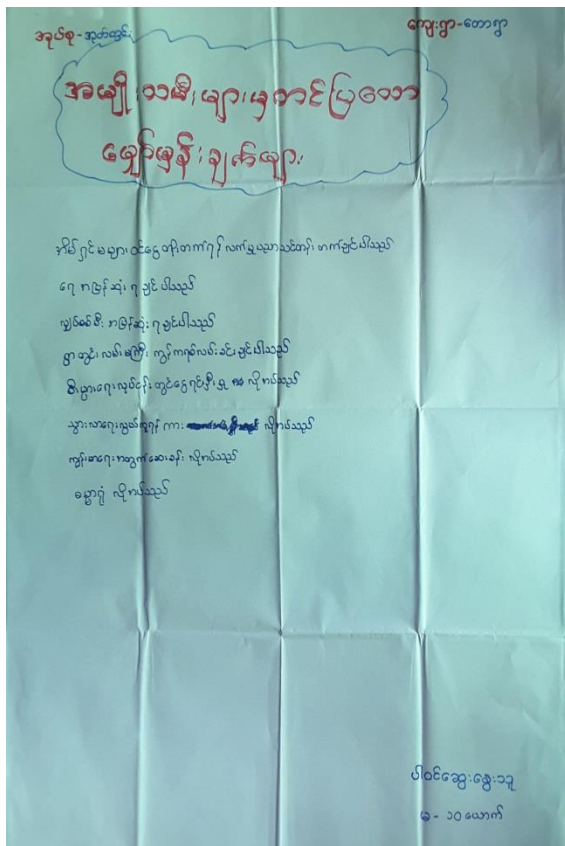 အုပ်စု-အုတ်တွင်း
ကျေးရွာ-တောရွာ
အမျိုးသမီးများမှတင်ပြသော
မျှော်မှန်းချက်များ
အိမ်ရှင်မများဝင်ငွေတိုးတက်ရန် လက်မှုပညာသင်တန်း တက်ချင်ပါသည်
ရေ အမြန်ဆုံး ရချင်ပါသည်
လျှပ်စစ်မီး အမြန်ဆုံး ရချင်ပါသည်
ရွာတွင်းလမ်းမကြီး ကွန်ကရစ်လမ်းခင်းချင်ပါသည်
စီးပွားရေးလုပ်ငန်းတွင်ငွေရင်းနှီးမှု လိုအပ်သည်
သွားလာရေးလွယ်ကူရန် ကား လိုအပ်သည်
ကျန်းမာရေးအတွက်ဆေးခန်း လိုအပ်သည်
ဓမ္မာရုံ လိုအပ်သည်
ပါဝင်ဆွေးနွေးသူ
မ - ၁၀ ယောက်